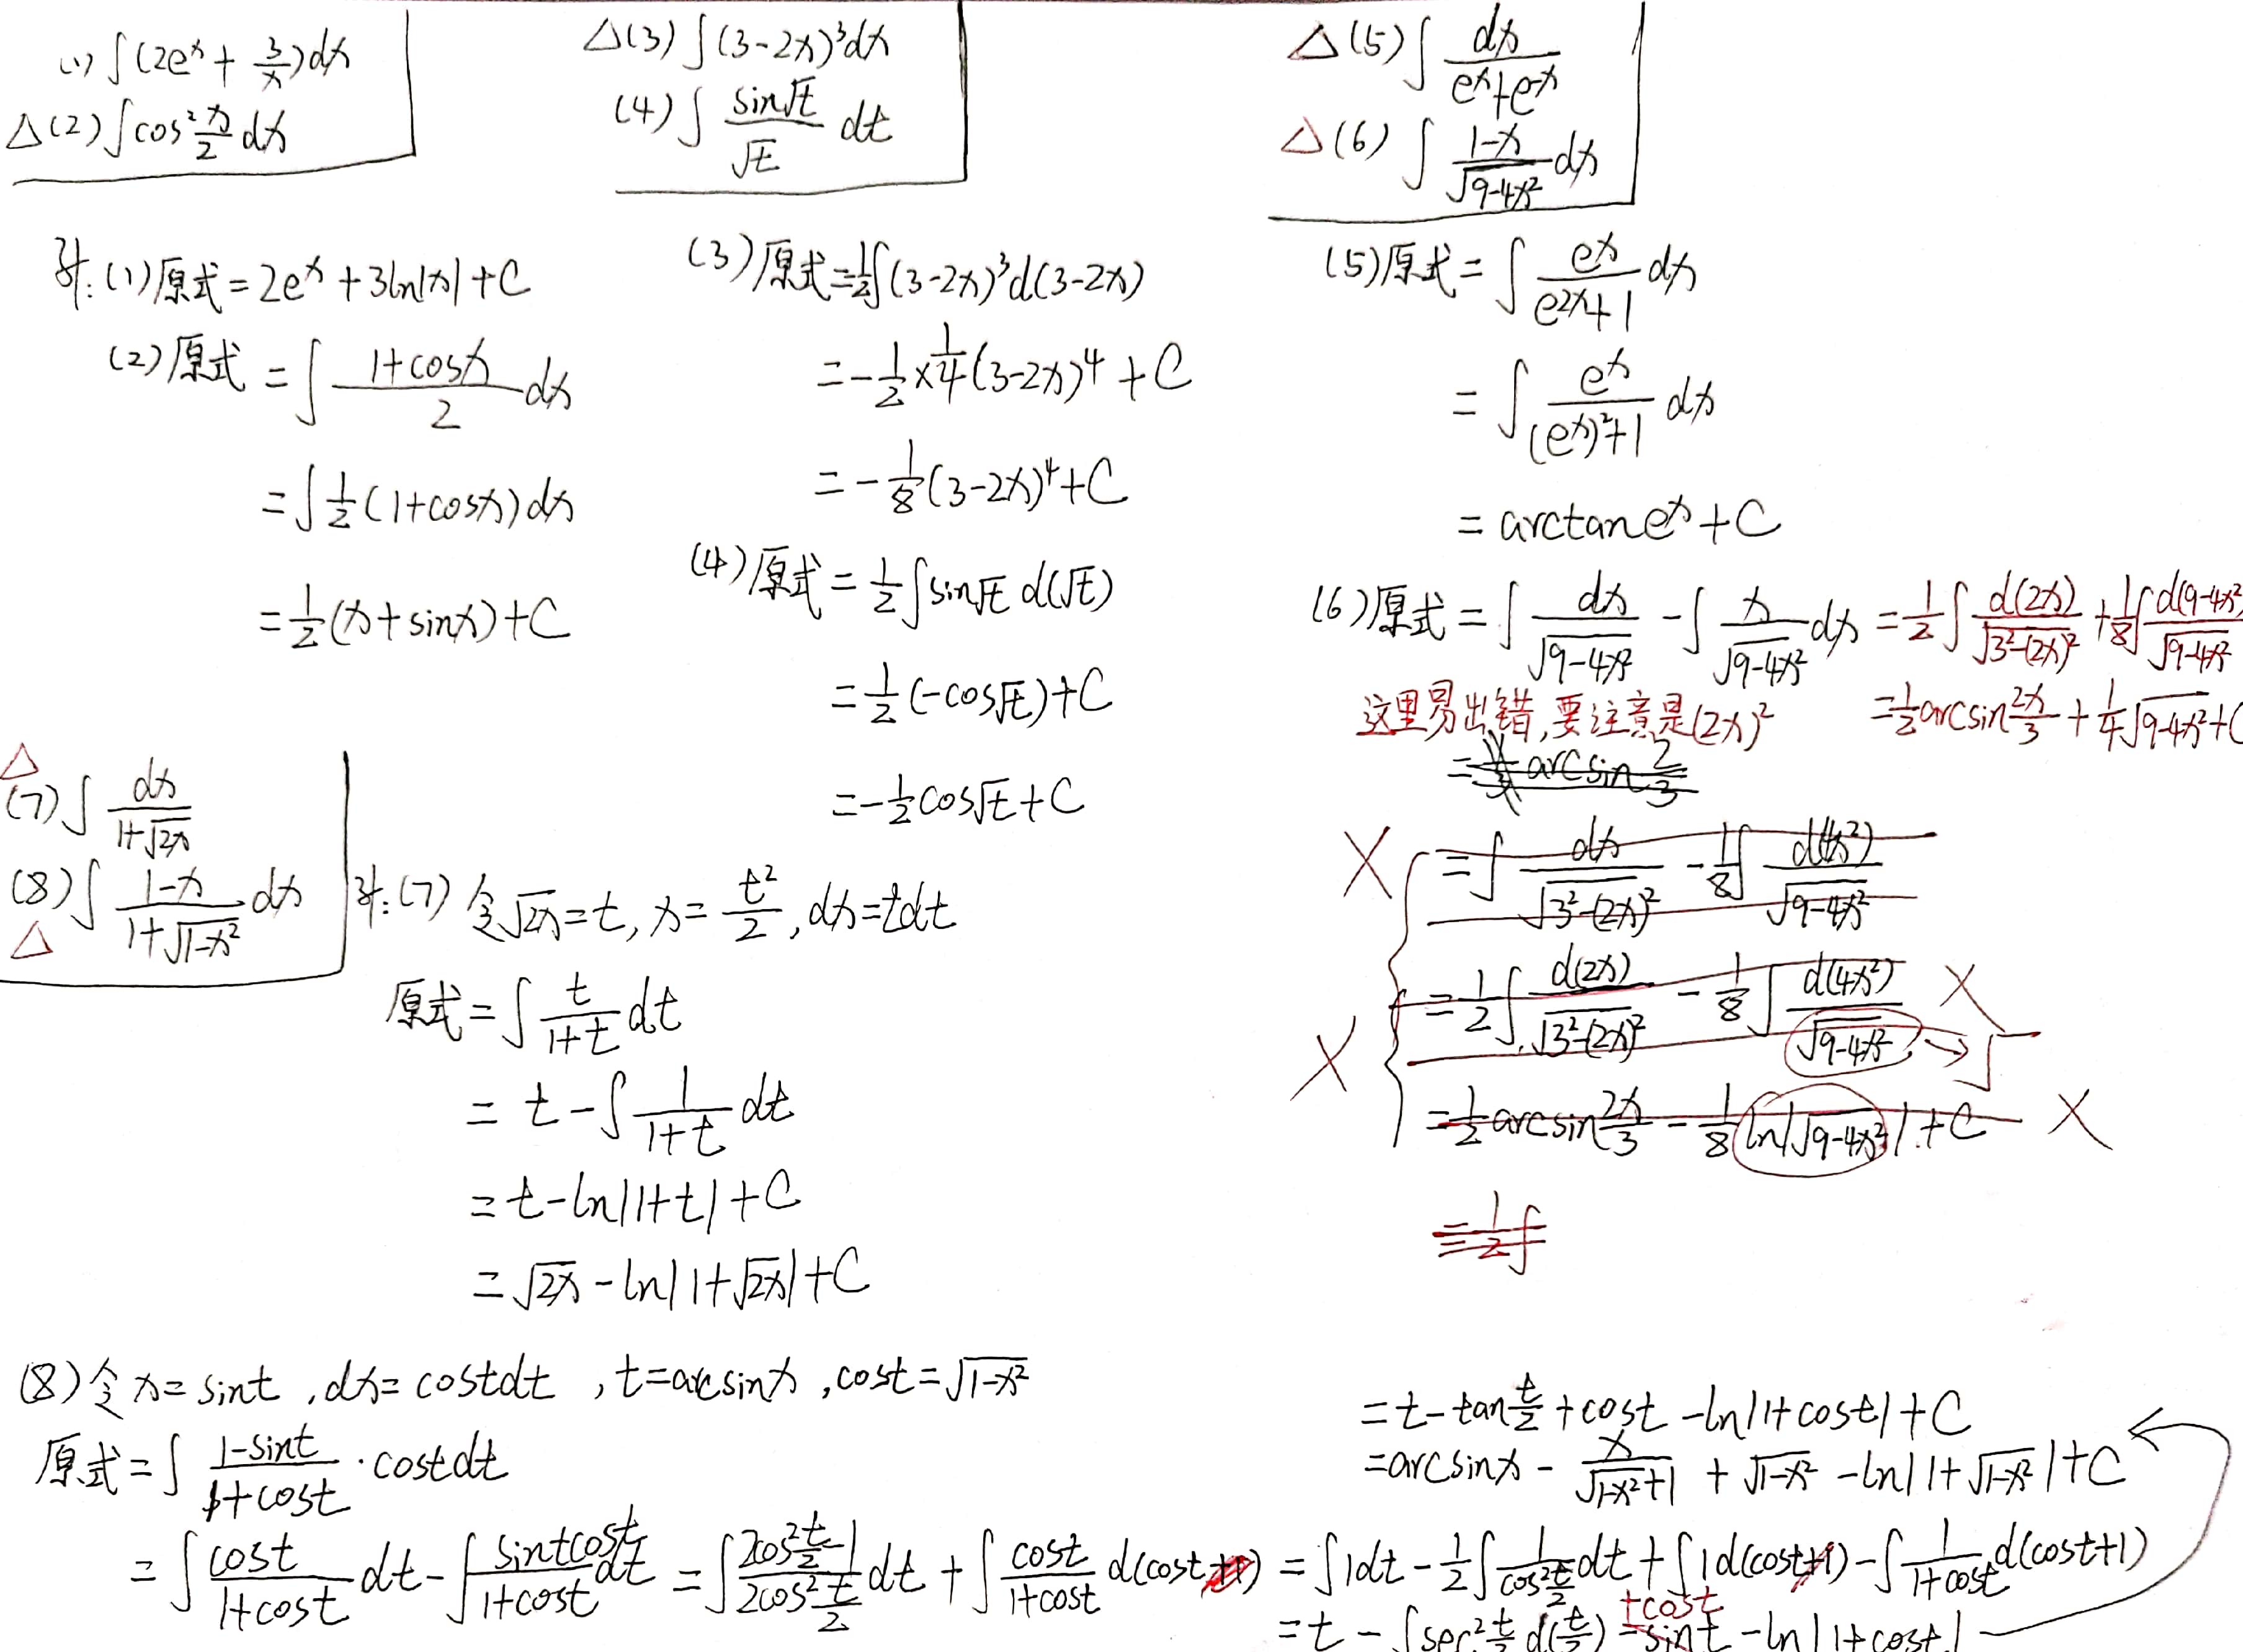 (1) ∫(2eˣ + 3/x)dx
△(2) ∫cos² x/2 dx
△(3) ∫(3-2x)³dx
(4) ∫ sin√t/√t dt
△(5) ∫ dx/(eˣ+e⁻ˣ)
△(6) ∫ (1-x)/√(9-4x²) dx
解:(1)原式=2eˣ+3ln|x|+C
(2)原式 = ∫ (1+cosx)/2 dx
=∫ 1/2 (1+cosx)dx
= 1/2 (x+sinx)+C
(3)原式=-1/2∫(3-2x)³d(3-2x)
=-1/2×1/4(3-2x)⁴+C
=-1/8(3-2x)⁴+C
(4)原式= 1/2∫sin√t d(√t)
= 1/2(-cos√t)+C
=-1/2cos√t+C
(5)原式=∫ eˣ/(e²ˣ+1) dx
=∫ eˣ/((eˣ)²+1) dx
= arctan eˣ+C
(6)原式=∫ dx/√(9-4x²) -∫ x/√(9-4x²) dx = 1/2∫ d(2x)/√(3²-(2x)²) + 1/8∫ d(9-4x²)/√(9-4x²)
这里易出错,要注意是(2x)² = 1/2 arcsin 2x/3 + 1/4√(9-4x²)+C
= arcsin 2/3
X =∫ dx/√(3²-(2x)²) - 1/8∫ d(4x²)/√(9-4x²)
X = 1/2∫ d(2x)/√(3²-(2x)²) - 1/8∫ d(4x²)/√(9-4x²) X → √
= 1/2 arcsin 2x/3 - 1/8 ln|√(9-4x²)|+C X
= 1/2∫
△(7) ∫ dx/(1+√2x)
(8) ∫ (1-x)/(1+√(1-x²)) dx △
解:(7) 令√2x=t, x= t²/2, dx=tdt
原式=∫ t/(1+t) dt
= t -∫ 1/(1+t) dt
=t-ln|1+t|+C
=√2x-ln|1+√2x|+C
(8)令x=sint ,dx=costdt ,t=arcsinx ,cost=√(1-x²)
原式=∫ (1-sint)/(1+cost) ·costdt
=∫ cost/(1+cost) dt-∫ sintcost/(1+cost) dt =∫ (2cos² t/2 -1)/(2cos² t/2) dt +∫ cost/(1+cost) d(cost) =∫1dt- 1/2∫ 1/(cos² t/2) dt+∫1d(cost+1)-∫ 1/(1+cost) d(cost+1)
=t -∫sec² t/2 d(t/2) +cost -sint -ln|1+cost|
=t-tan t/2 +cost -ln|1+cost|+C
=arcsinx - x/(√(1-x²)+1) + √(1-x²) -ln|1+√(1-x²)|+C